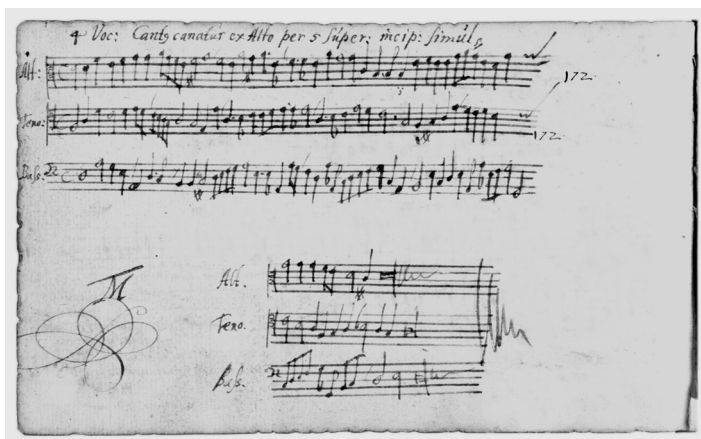 4 Voc: Cantꝯ canatur ex Alto per 5 super: incip: simul
Alt:
172
Teno:
172
Bass:
Alt.
M
Teno.
Bass.